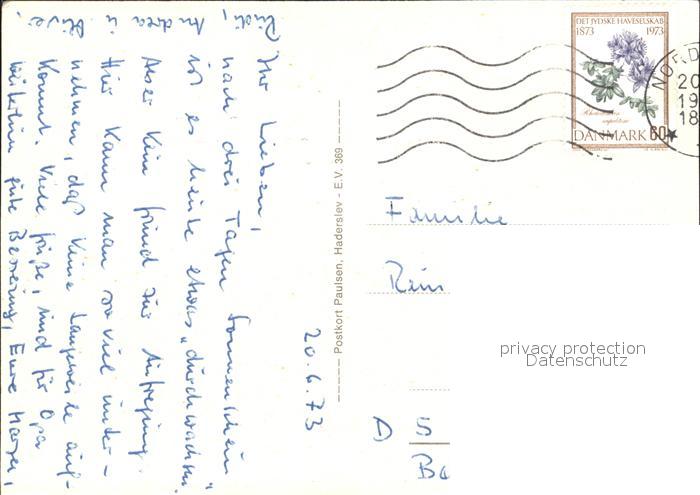 20.6.73
Ihr Lieben,
nach drei Tagen Sonnenschein
ist es heute etwas „durchwachsen".
Aber kein Grund zur Aufregung.
Hier kann man so viel unter-
nehmen, daß keine Langeweile auf-
kommt. Viele Grüße, und für Opa
weiterhin gute Besserung, Eure
Rudi,
Andrea u.
Postkort Paulsen, Haderslev - E.V. 369
DET JYDSKE HAVESELSKAB
1873 1973
DANMARK 60
NORD
20
19
18
Familie
Rein
privacy protection
Datenschutz
D S
Ba